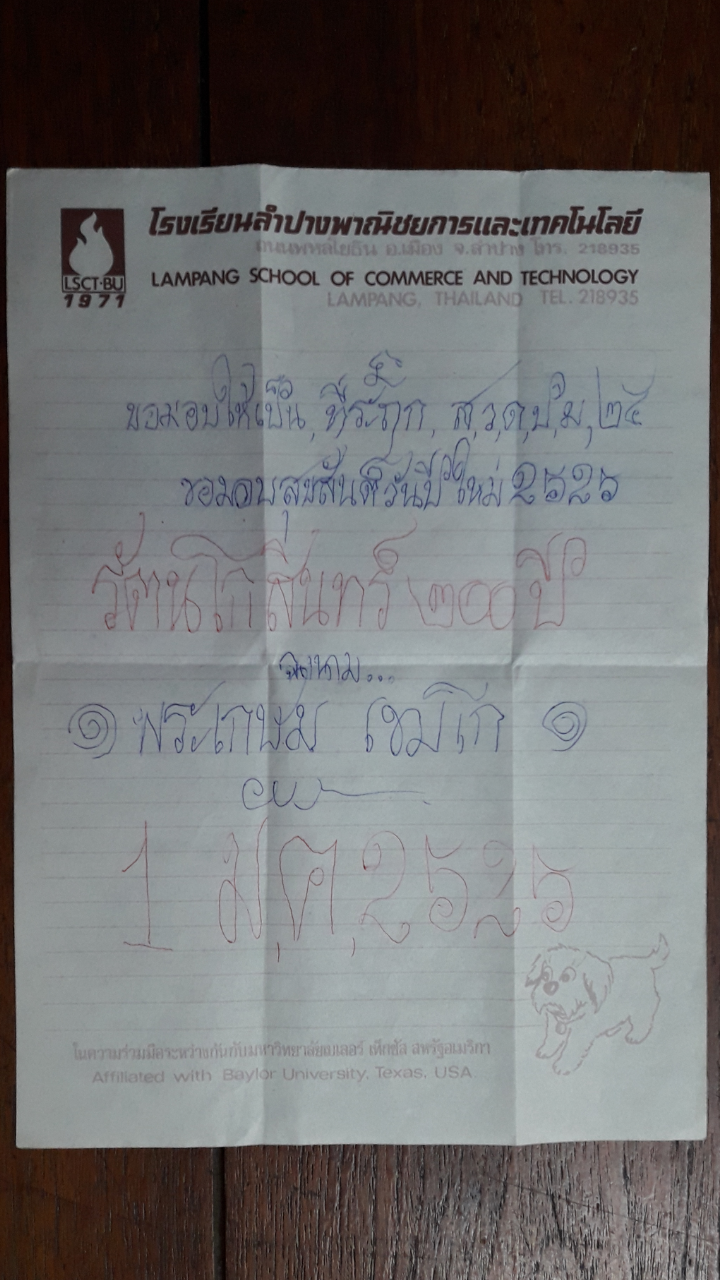 โรงเรียนลำปางพาณิชยการและเทคโนโลยี
ถนนพหลโยธิน อ.เมือง จ.ลำปาง โทร. 218935
LSCT-BU
1971
LAMPANG SCHOOL OF COMMERCE AND TECHNOLOGY
LAMPANG, THAILAND TEL. 218935
ขอมอบให้เป็น, ที่ระฤก, ส,ว,ด,ป,ม, ๒๕
ขอมอบสุขสันต์วันปีใหม่ ๒๕๒๕
รัตนโกสินทร์ ๒๐๐ ปี
ลงนาม...
๑ พระเกษม เขมโก ๑
1 ม,ค, ๒๕๒๕
ในความร่วมมือระหว่างกันกับมหาวิทยาลัยเบเลอร์ เท็กซัส สหรัฐอเมริกา
Affiliated with Baylor University, Texas, USA